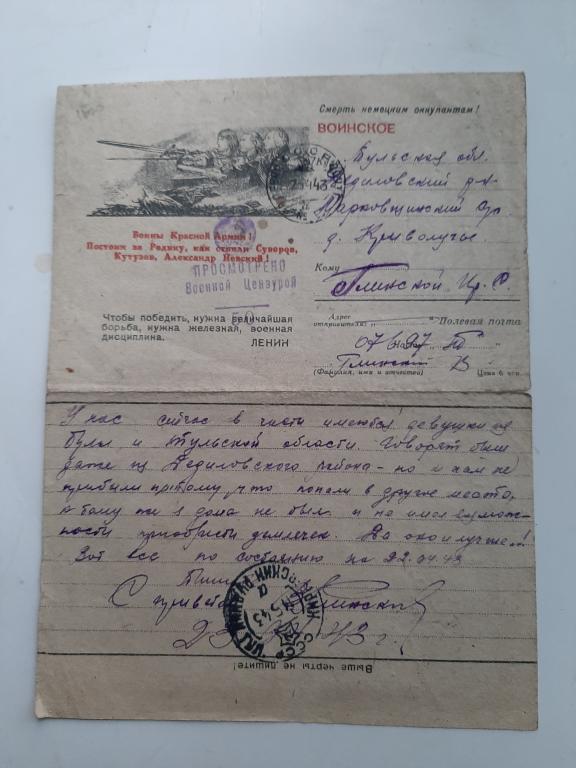 Смерть немецким оккупантам!
ВОИНСКОЕ
Воины Красной Армии!
Постоим за Родину, как стояли Суворов,
Кутузов, Александр Невский!
ПРОСМОТРЕНО
Военной Цензурой
50
Чтобы победить, нужна величайшая
борьба, нужна железная, военная
дисциплина. ЛЕНИН
Тульская обл.
Дедиловский р-н
Марковщинский
д. Криволучье
Кому
Глинской Ир. С.
Адрес
отправителя: Полевая почта
07697 "Б"
Глинский В
(Фамилия, имя и отчество) Цена 6 коп.
У нас сейчас в части имеются девушки из
Тулы и Тульской области. Говорят были
даже из Дедиловского района – но к нам не
прибыли потому, что попали в другие места,
к тому же я дома не был и не имел возмож-
ности приобрести землячек. Да оно и лучше..!
Вот все по состоянию на 22.04.43
С приветом Глинский
43 г.
СССР
5 43
Выше черты не пишите!